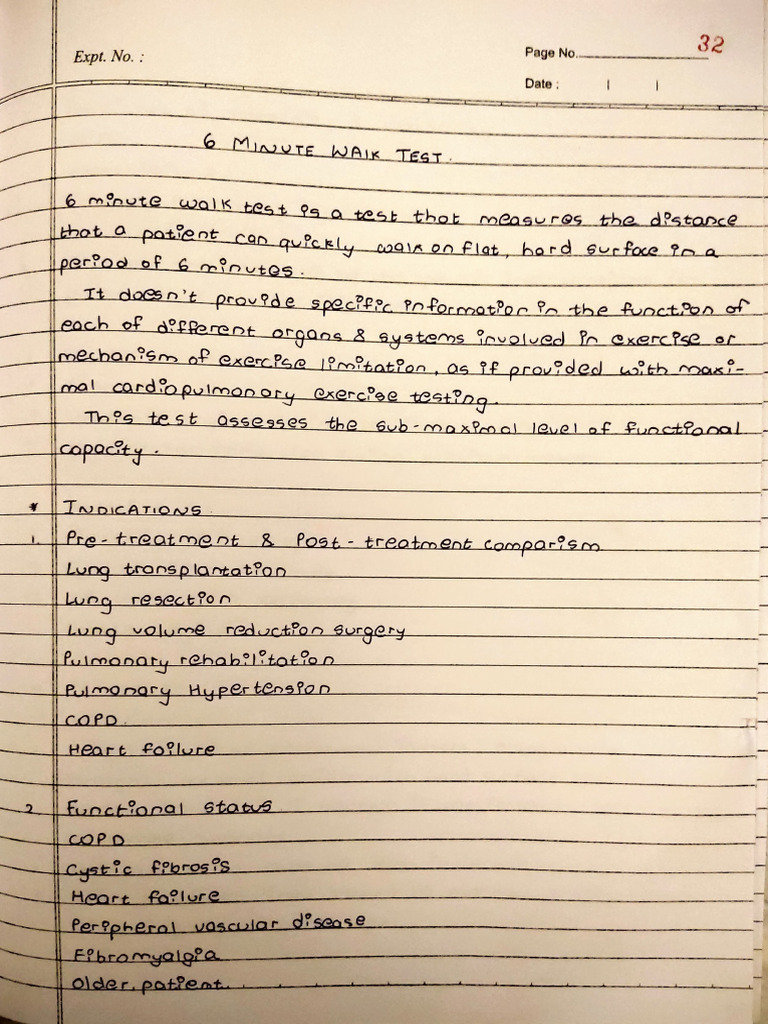 Expt. No. :
Page No. 32
Date :
6 MINUTE WALK TEST.
6 minute walk test is a test that measures the distance
that a patient can quickly walk on flat, hard surface in a
period of 6 minutes.
It doesn't provide specific information in the function of
each of different organs & systems involved in exercise or
mechanism of exercise limitation, as if provided with maxi-
mal cardiopulmonary exercise testing.
This test assesses the sub-maximal level of functional
capacity.
* INDICATIONS
1. Pre-treatment & Post-treatment comparism
Lung transplantation
Lung resection
Lung volume reduction surgery
Pulmonary rehabilitation
Pulmonary Hypertension
COPD.
Heart failure
2. Functional status
COPD
Cystic fibrosis
Heart failure
Peripheral vascular disease
Fibromyalgia
Older patient.